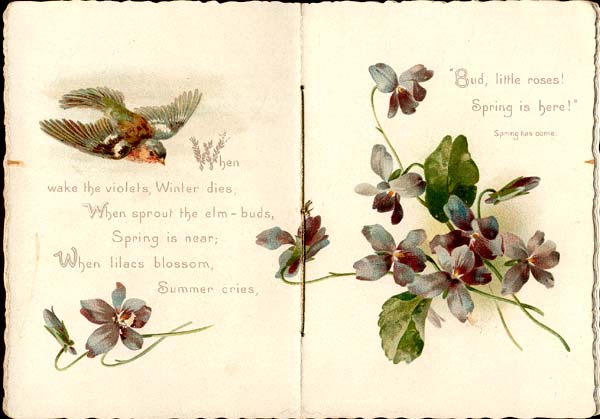 When
wake the violets, Winter dies,
When sprout the elm-buds,
Spring is near;
When lilacs blossom,
Summer cries,
"Bud, little roses!
Spring is here!"
Spring has come.